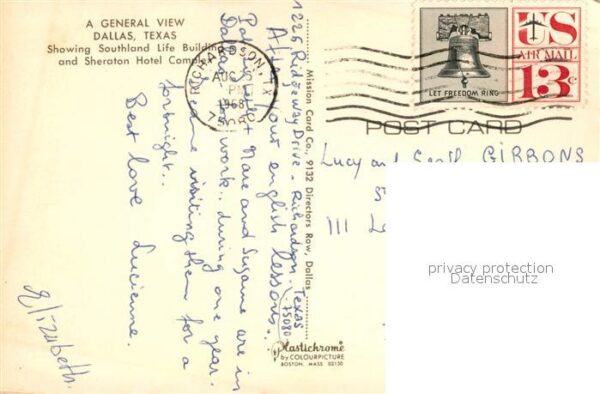 A GENERAL VIEW
DALLAS, TEXAS
Showing Southland Life Building
and Sheraton Hotel Complex
RICHARDSON, TX
AUG
PM
1968
LET FREEDOM RING
US
AIR MAIL
13c
POST CARD
Lucy and GIBBONS
5
111
privacy protection
Datenschutz
Mission Card Co., 9132 Directors Row, Dallas
Plastichrome
by COLOURPICTURE
BOSTON, MASS 02130
1226 Ridgeway Drive - Richardson - Texas
75080
After our english lessons..
and Suzanne are in
Dallas work.. during one year.
came visiting them for a
fortnight..
Best love Lucienne.
Elizabeth.